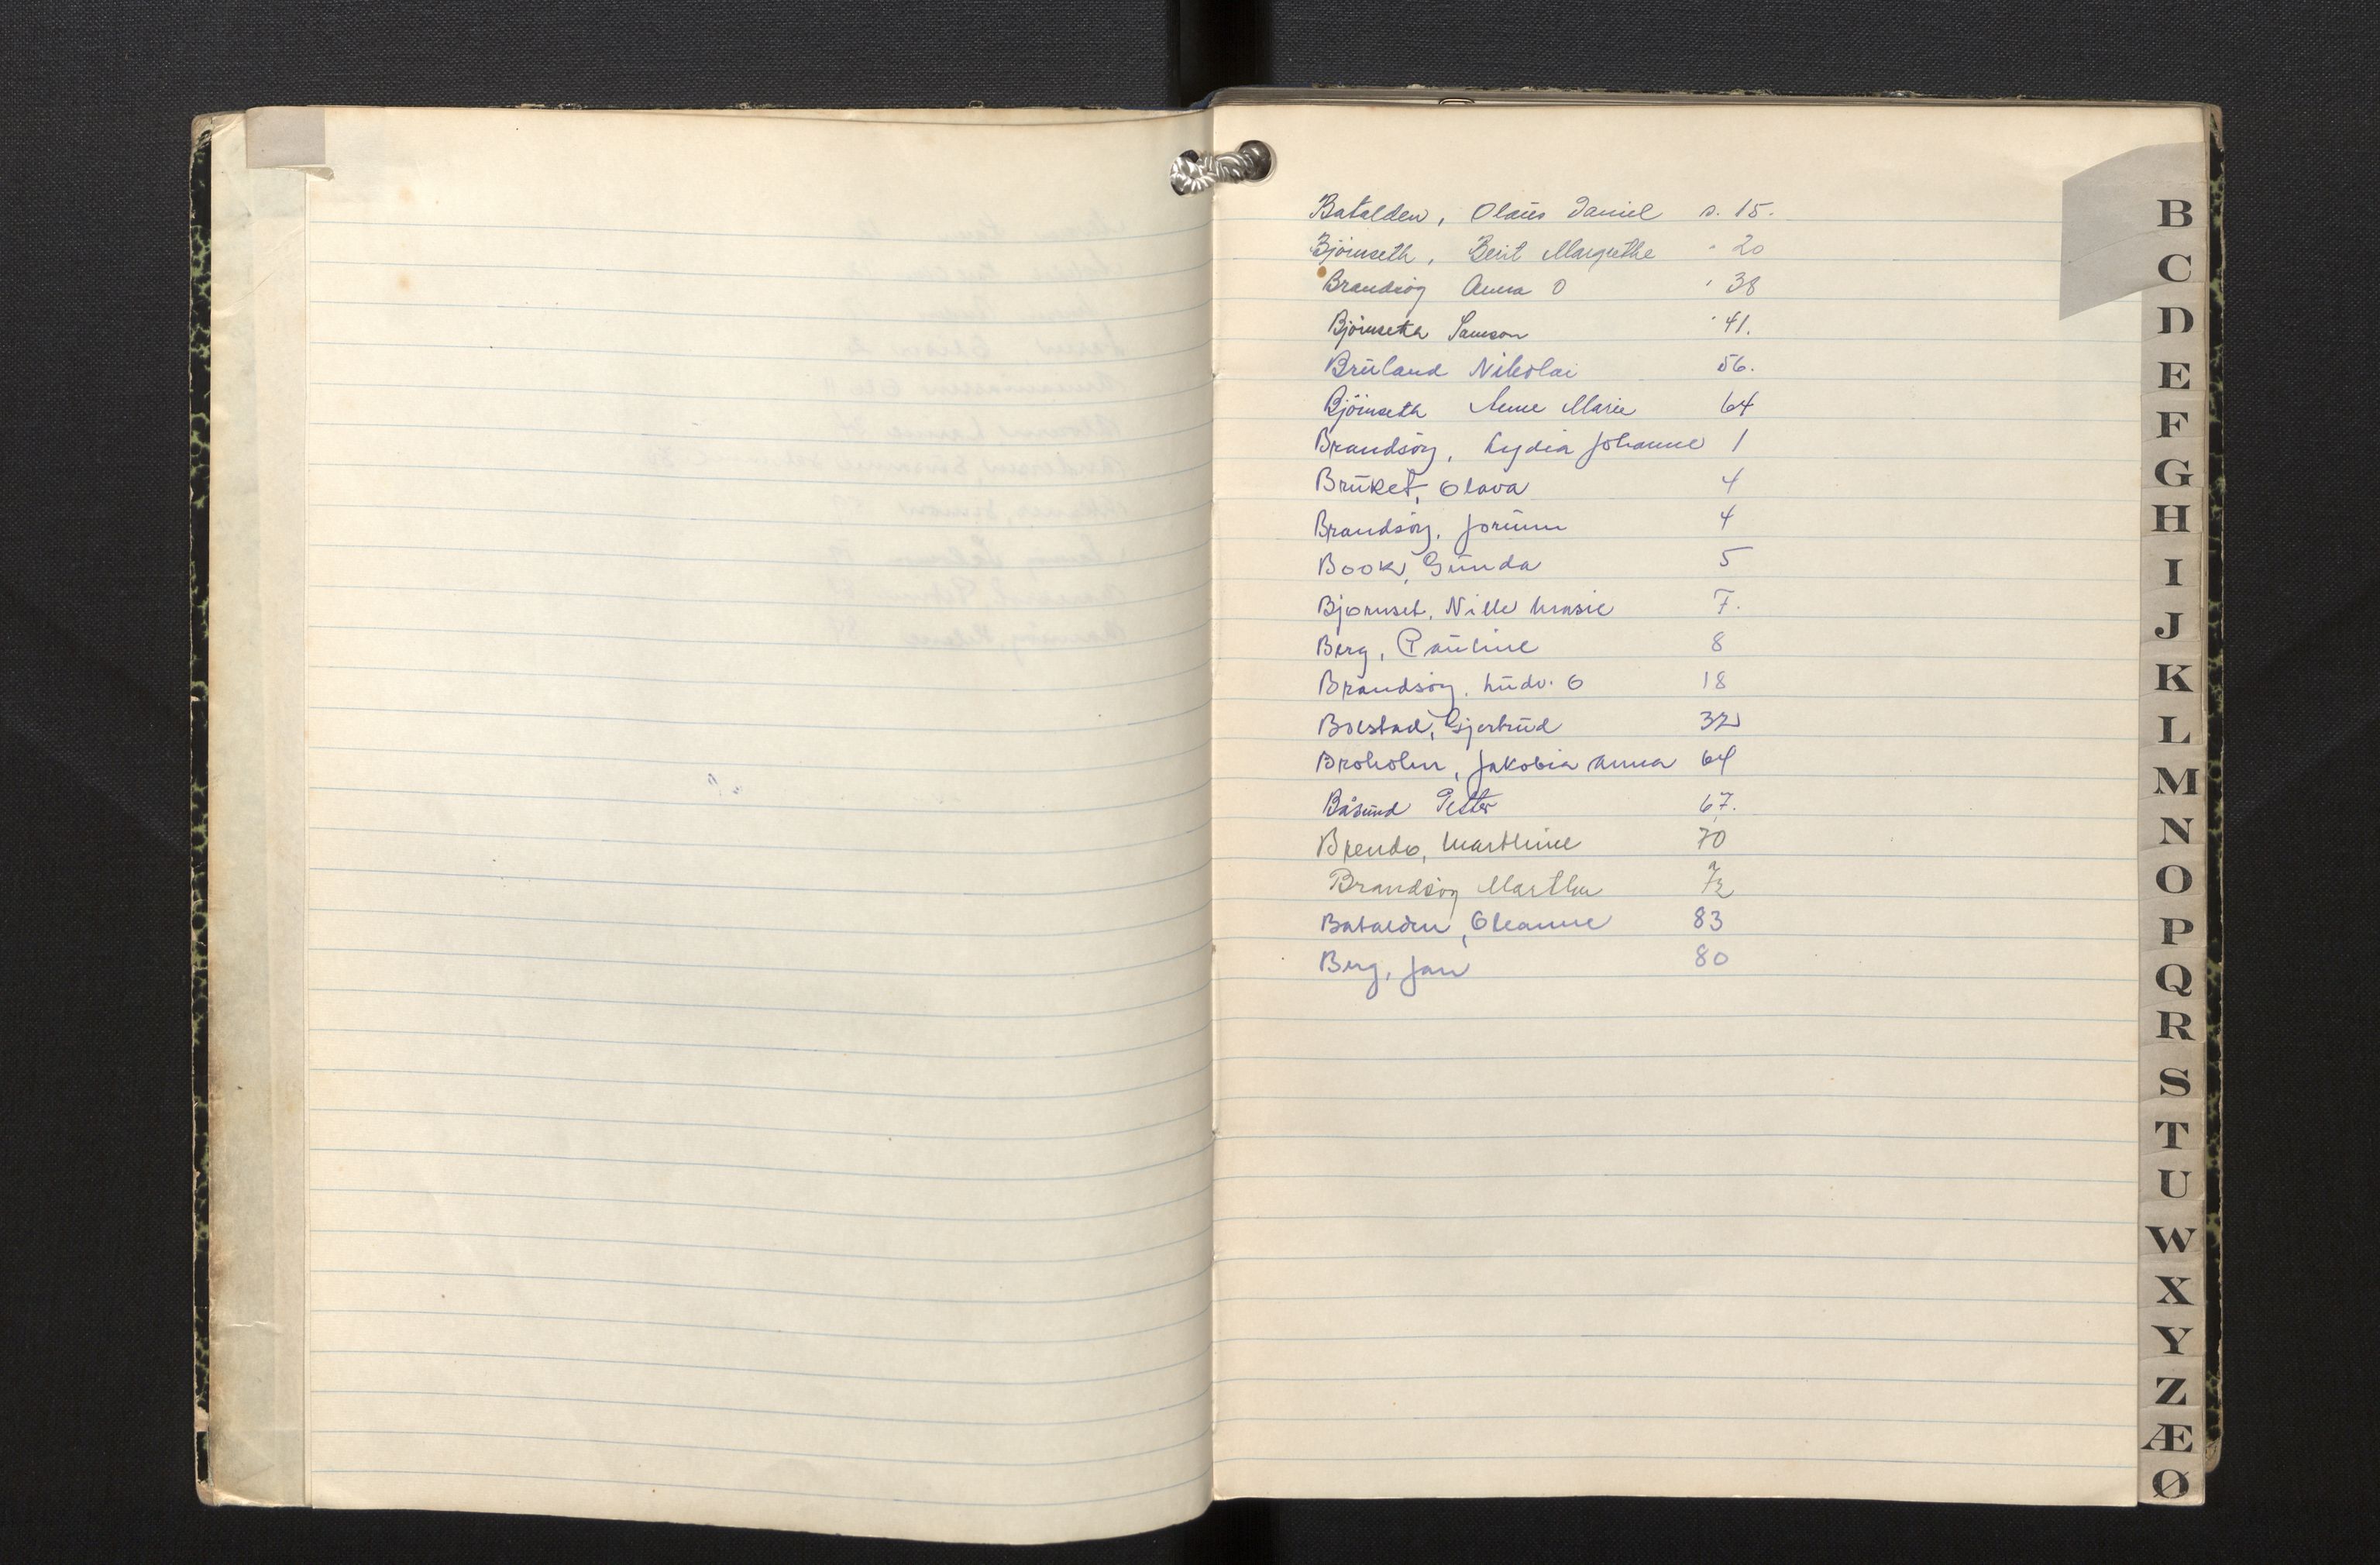 Batalden, Olaus Daniel s. 15.
Bjørnseth, Berit Margrethe " 20
Brandsøy Anna O " 38
Bjørnseth Samson " 41.
Bruland Nikolai 56.
Bjørnseth Anne Marie 64
Brandsøy, Lydia Johanne 1
Bruket, Olava 4
Brandsøy, Jorunn 4
Book, Gunda 5
Bjørnset, Nille Marie 7.
Berg, Pauline 8
Brandsøy, Ludv. O 18
Gjertrud 32
Broholm, Jakobia Anna 64
Båsund Petter 67.
Brendø, Marthine 70
Brandsøy Martha 72
Batalden, Oleanne 83
Berg, Jan 80
B
C
D
E
F
G
H
I
J
K
L
M
N
O
P
Q
R
S
T
U
W
X
Y
Z
Æ
Ø